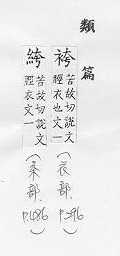 類篇
袴 苦故切說文
脛衣也文一 (衣部. P.296)
絝 苦故切說文
脛衣文一 (糸部. P.486)